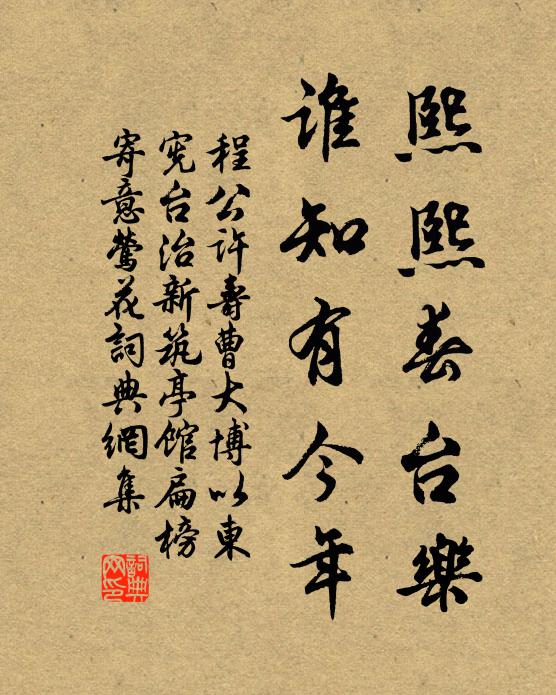 熙熙春台樂
誰知有今年
程公许壽曹大博以東
宪台治新筑亭馆扁榜
寄意鶯花詞典網集
詞典网印